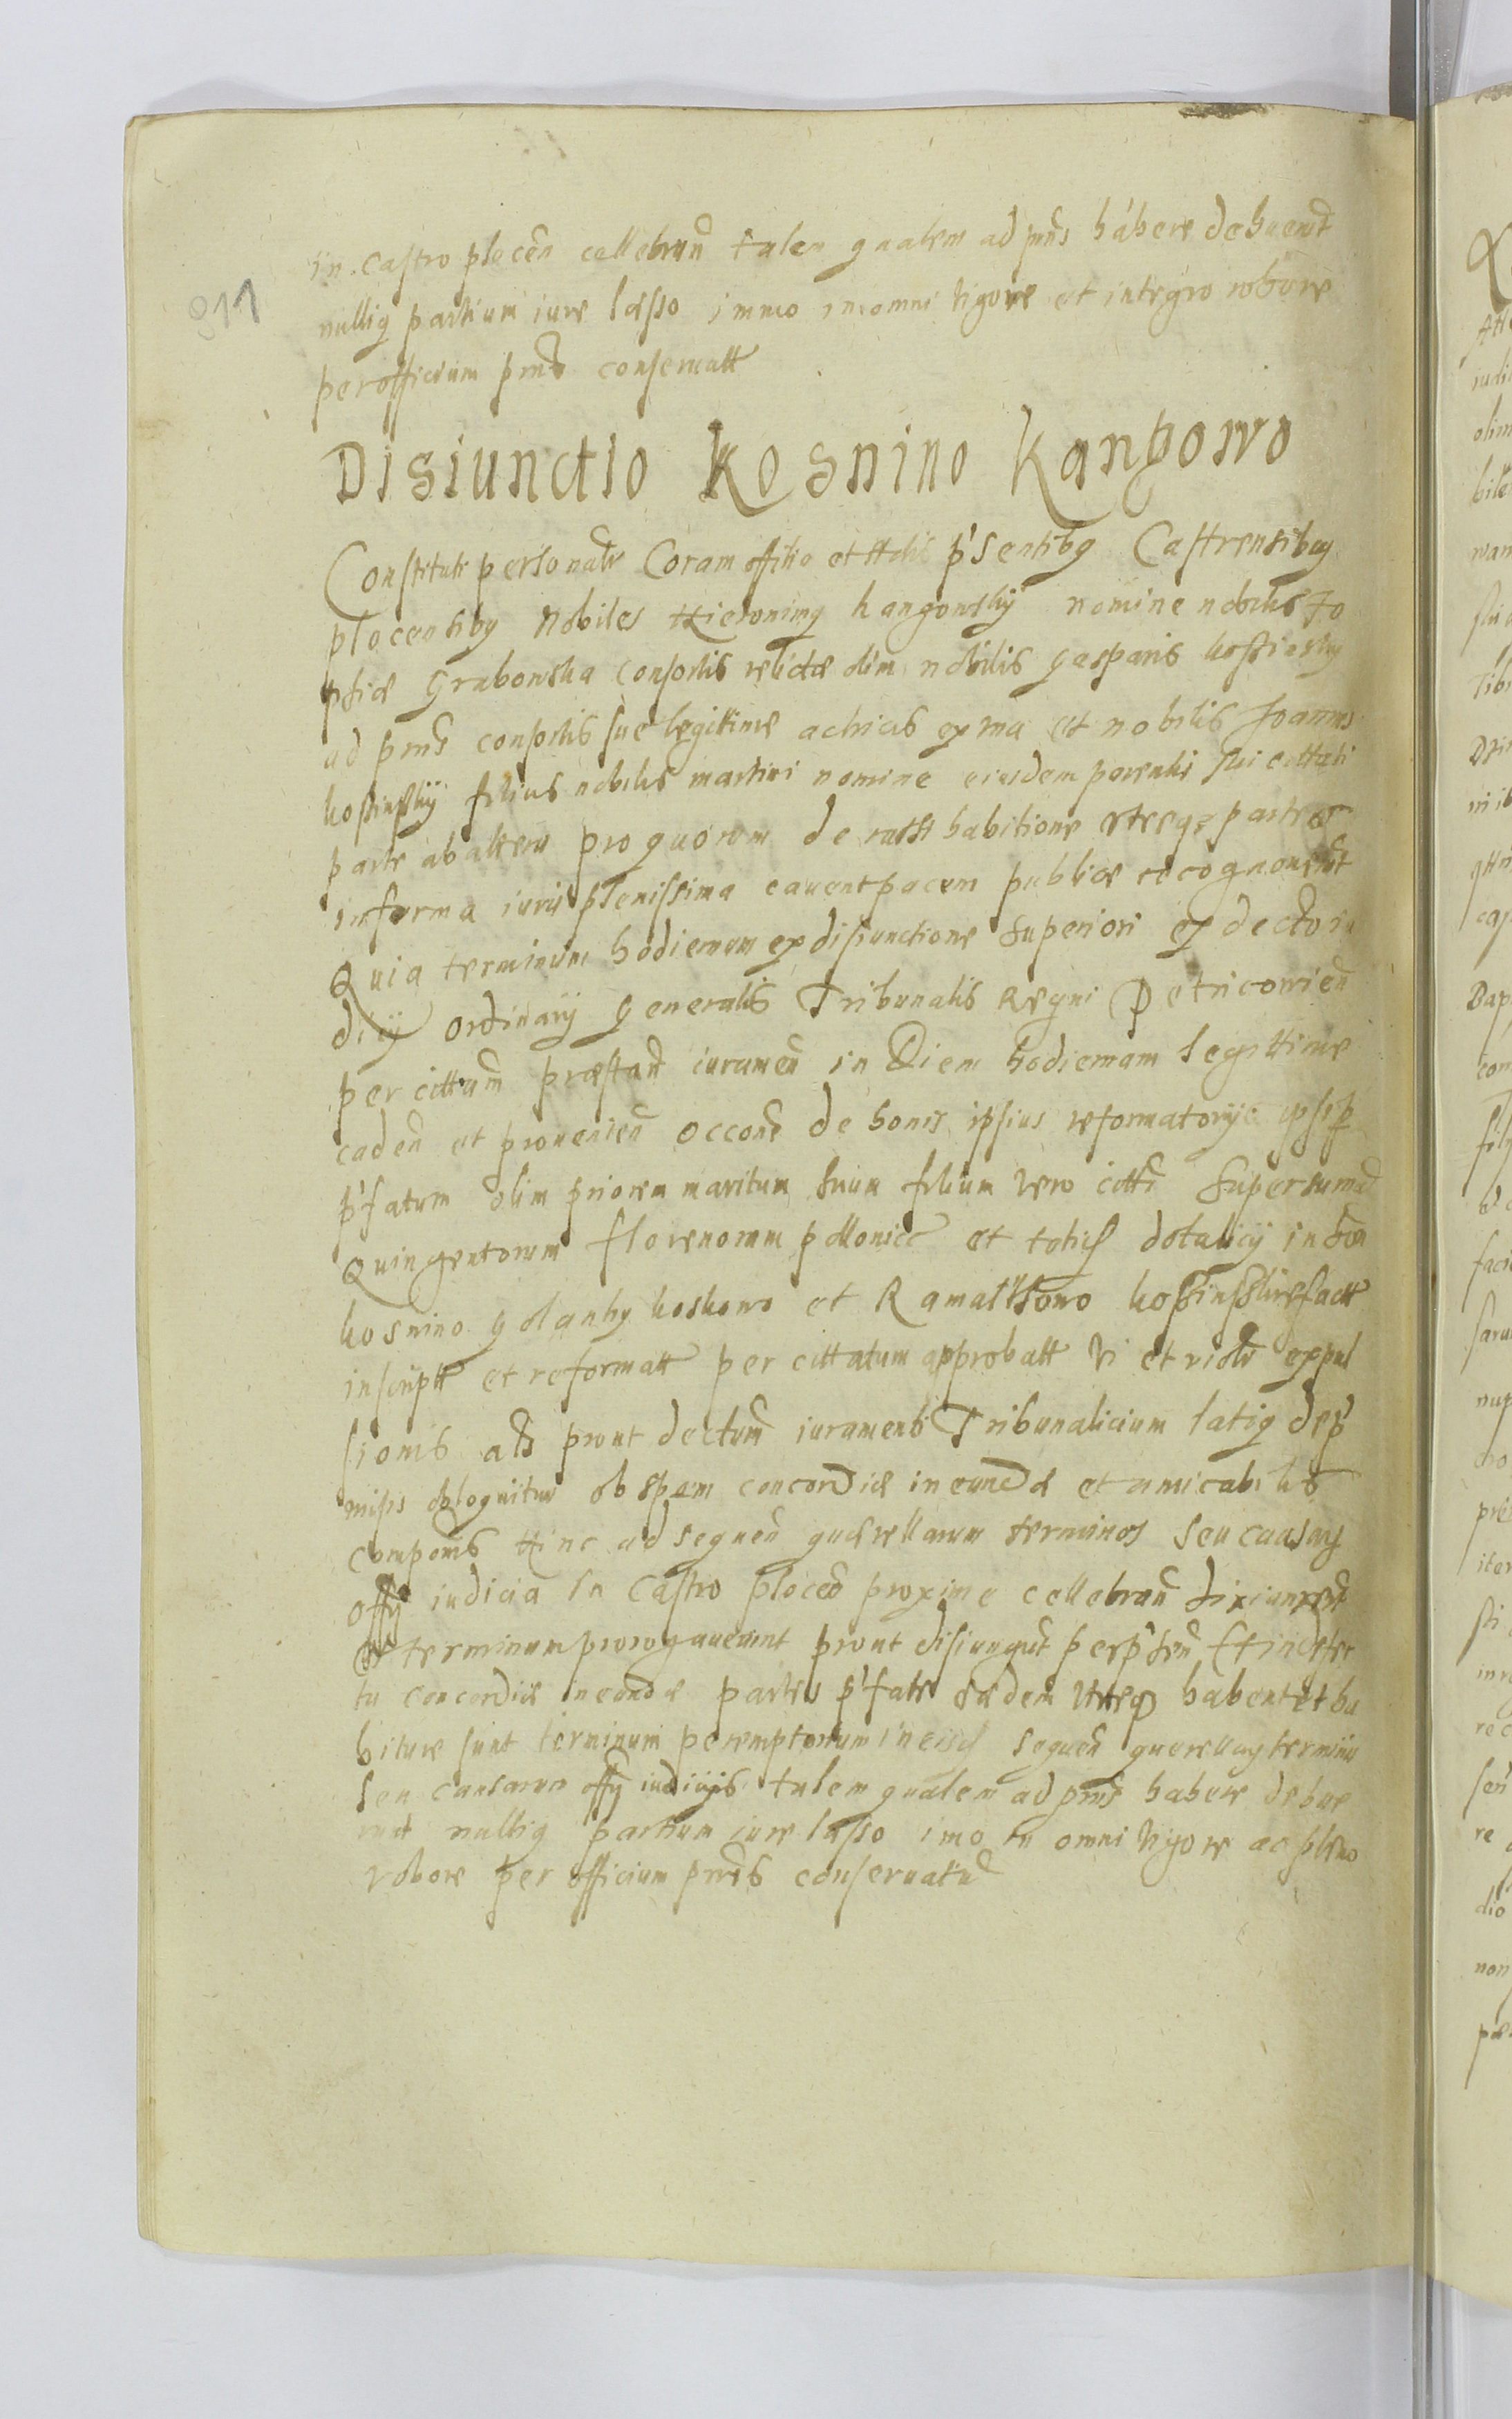 in castro plocen̄ cellebran̄ talem qualem ad pn̄s habere debuerūt
811
nulliq partium iure laesso immo in omni vigore et integro robore
per officium pn̄s conseruatt
Disiunctio Kosnino Kangowo
Constituti personalr Coram officio et actis p'sentibq Castrensibq
plocensibq Nobiles Hieronimq kangowskÿ nomine nobilis Zo
phiæ Grabowska consortis relictæ olim nobilis Gasparis
ad pn̄s consortis suæ legittimæ actricis ex vna et nobilis Joannes
kossinskÿ filius nobilis martini nomine eiusdem parentis sui cittati
parte ab altera pro quorum de ratti habitione vtreqz partes
in forma iuris plenissima cauent pacem publice recognouerūt
Quia terminum hodiernum ex disiunctione superiori ex decto iu
dicÿ ordinarÿ Generalis Tribunalis Regni Petricowien̄
per cittatum præstand iuramen̄ in Diem hodiernam legittime
caden̄ et prouenien̄ occone de bonis ipsius reformatorÿs ipsi p
p'fatum olim priorem maritum suum filium vero citti Super summā
Quingentorum florenorum pollonicc et totid dotalicÿ in bon
kosnino golanky koskowo et Ramatthowo fact
inscriptt et reformatt per cittatum approbatt vi et violr expul
sionis als prout dectum iuramenti Tribunalicium latiq dep
missis obloquitur ob spem concordiæ ineundæ et amicabilis
componis Hinc ad sequen̄ querellarum terminos seu causarq
offÿ iudicia in Castro plocen̄ proxime cellebran̄ dixiunxerūt
et terminum prorogauerunt prout disiungūt per p'sen̄ Et in defec
tu concordiæ ineundæ partes p'fate eædem vtreqz habent et ha
biture sunt terminum peremptorium in eisd sequen̄ querellarq terminis
seu causarum offÿ iudicÿs talem qualem ad pn̄s habere debue
runt nulliq partium iure læsso imo in omni vigore ac pleno
robore per officium pn̄s conseruatu